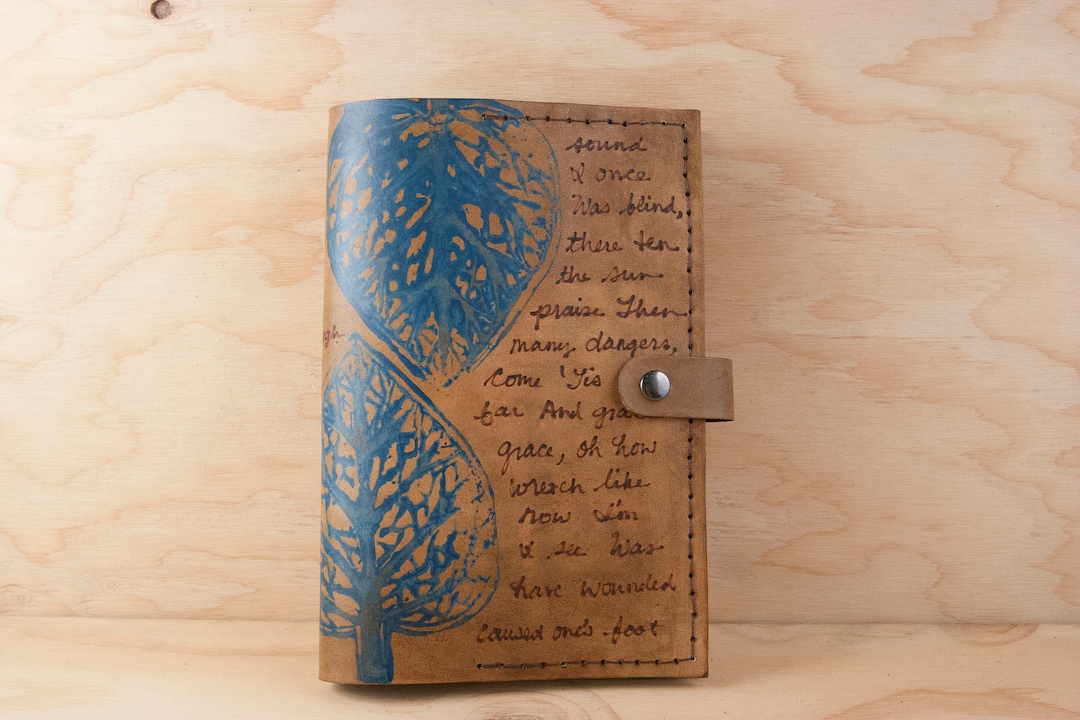 sound
I once
Was blind,
there ten
the sun
praise Then
many dangers,
Come 'Tis
far And grac
grace, oh how
wretch like
now I'm
I see Was
have wounded
caused one's foot
gh